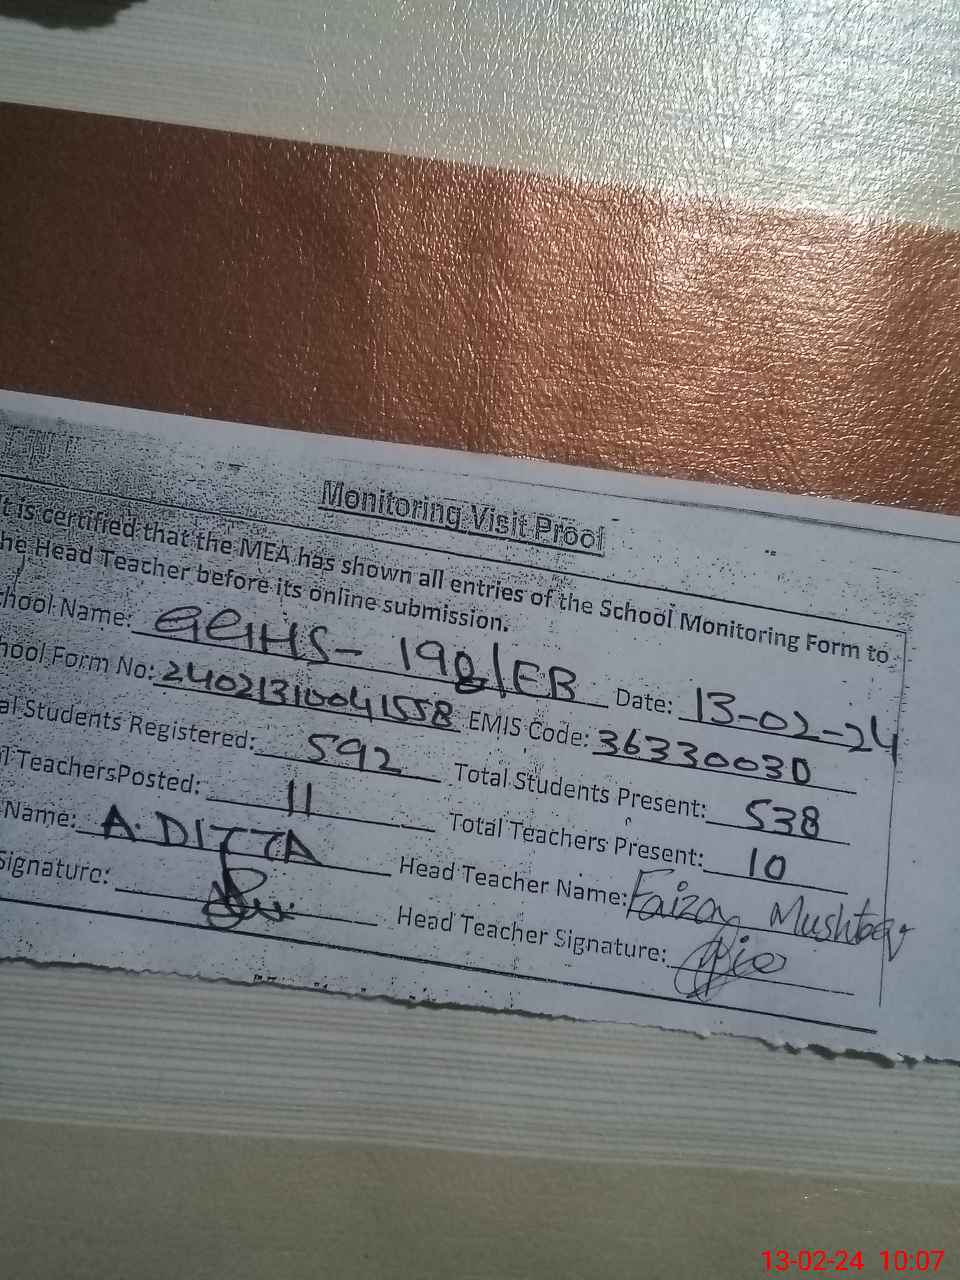 Monitoring Visit Proof
t is certified that the MEA has shown all entries of the School Monitoring Form to
he Head Teacher before its online submission.
hool Name: GGHS- 198/EB Date: 13-02-24
hool Form No: 24021310041558 EMIS Code: 36330030
al Students Registered: 592 Total Students Present: 538
l TeachersPosted: 11 Total Teachers Present: 10
Name: A. DITTA Head Teacher Name: Faiza Mushtaq
Signature: Head Teacher Signature:
13-02-24 10:07